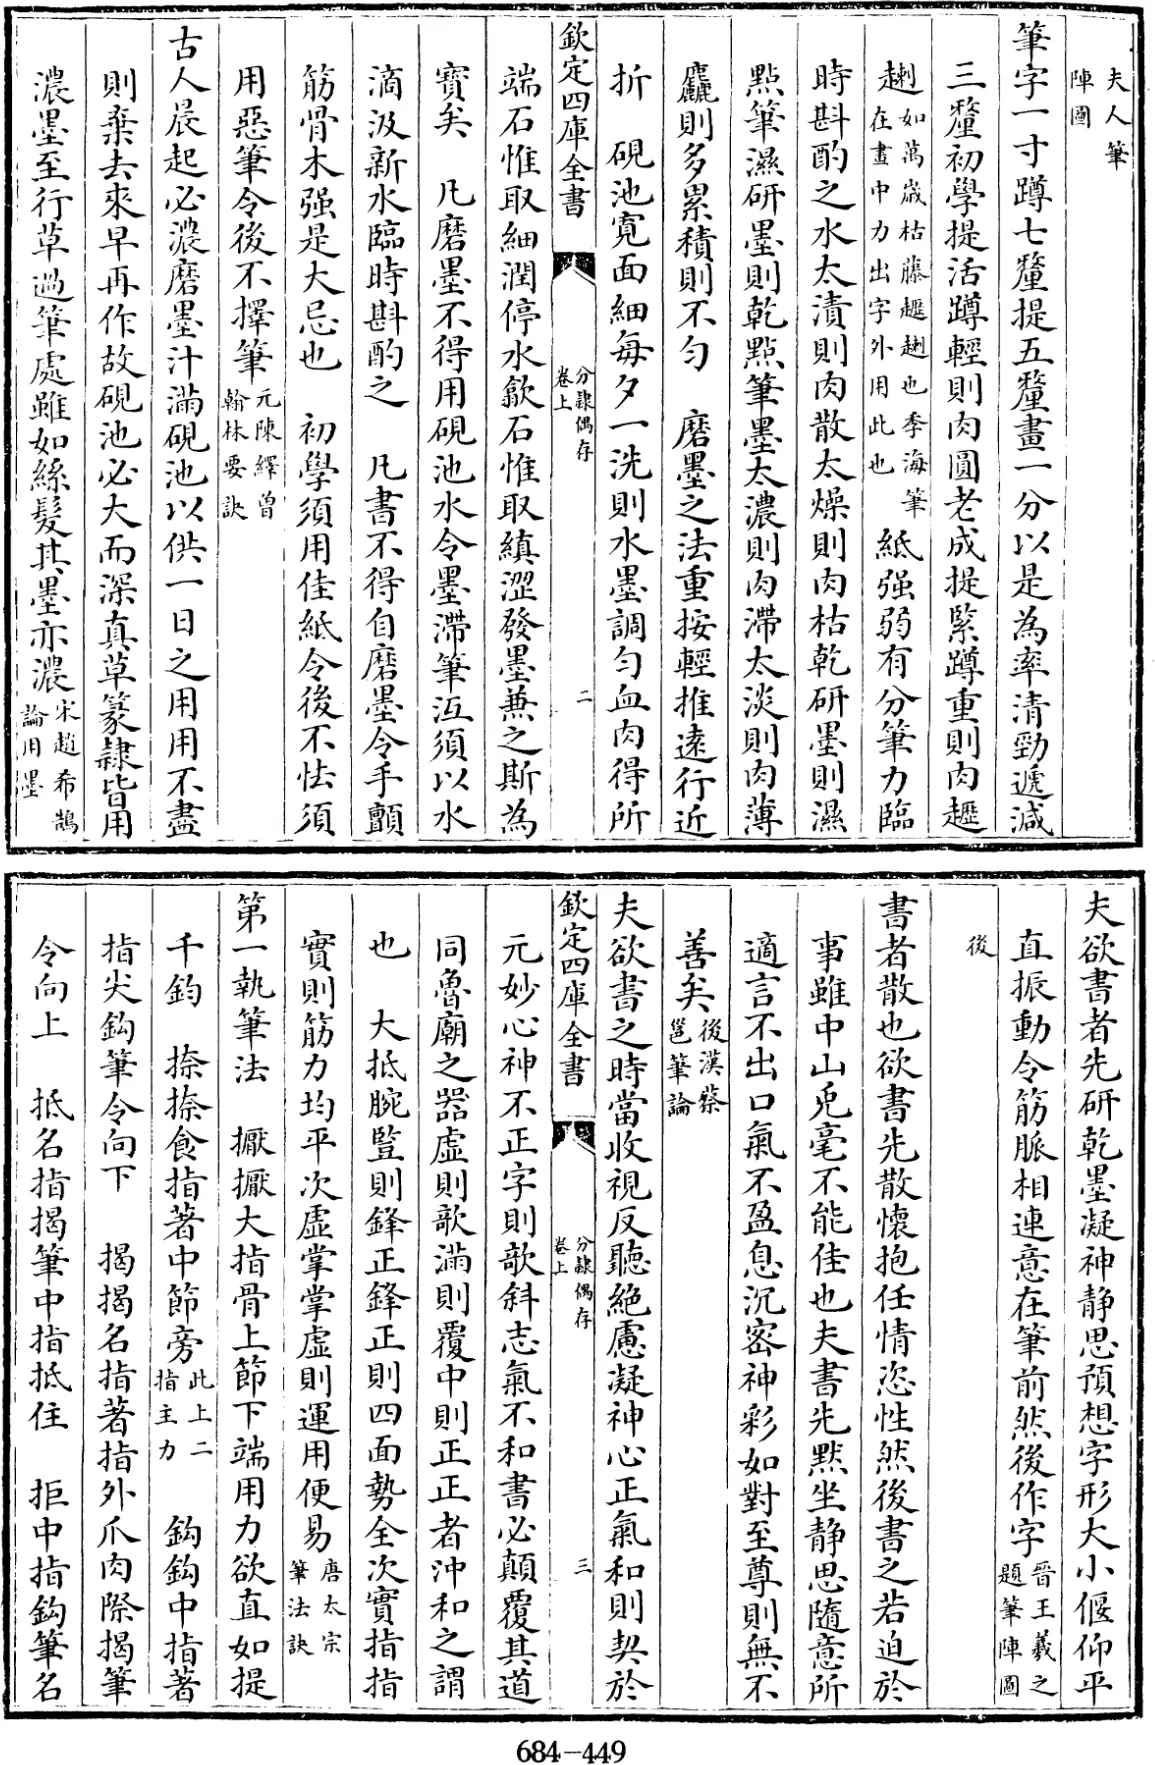 夫人筆
陣圖
筆字一寸蹲七釐提五釐畫一分以是為率清勁遞減
三釐初學提活蹲輕則肉圓老成提緊蹲重則肉趯
趔如萬歲枯藤趯趔也季海筆
在畫中力出字外用此也
紙强弱有分筆力臨
時斟酌之水太漬則肉散太燥則肉枯乾研墨則濕
點筆濕研墨則乾㸃筆墨太濃則肉滯太淡則肉薄
麤則多累積則不匀　磨墨之法重按輕推逺行近
折　硯池寛面細每夕一洗則水墨調匀血肉得所
欽定四庫全書
分隷偶存
卷上
二
端石惟取細潤停水歙石惟取縝澀發墨兼之斯為
寶矣　凡磨墨不得用硯池水令墨滯筆沍須以水
滴汲新水臨時斟酌之　凡書不得自磨墨令手顫
筋骨木强是大忌也　初學須用佳紙令後不怯須
用惡筆令後不擇筆元陳繹曾
翰林要訣
古人晨起必濃磨墨汁滿硯池以供一日之用用不盡
則棄去來早再作故硯池必大而深真草篆隷皆用
濃墨至行草過筆處雖如絲髮其墨亦濃宋趙希鵠
論用墨
夫欲書者先研乾墨凝神静思預想字形大小偃仰平
直振動令筋脈相連意在筆前然後作字晉王羲之
題筆陣圖
後
書者散也欲書先散懷抱任情恣性然後書之若迫於
事雖中山兎毫不能佳也夫書先黙坐静思隨意所
適言不出口氣不盈息沉宻神彩如對至尊則無不
善矣後漢蔡
邕筆論
夫欲書之時當收視反聽絶慮凝神心正氣和則契於
欽定四庫全書
分隷偶存
卷上
三
元妙心神不正字則欹斜志氣不和書必顛覆其道
同魯廟之器虛則欹滿則覆中則正正者沖和之謂
也　大抵腕豎則鋒正鋒正則四面勢全次實指指
實則筋力均平次虛掌掌虛則運用便易唐太宗
筆法訣
第一執筆法　擫擫大指骨上節下端用力欲直如提
千鈞　捺捺食指著中節旁此上二
指主力
鈎鈎中指著
指尖鈎筆令向下　揭揭名指著指外爪肉際揭筆
令向上　抵名指揭筆中指抵住　拒中指鈎筆名
684-449